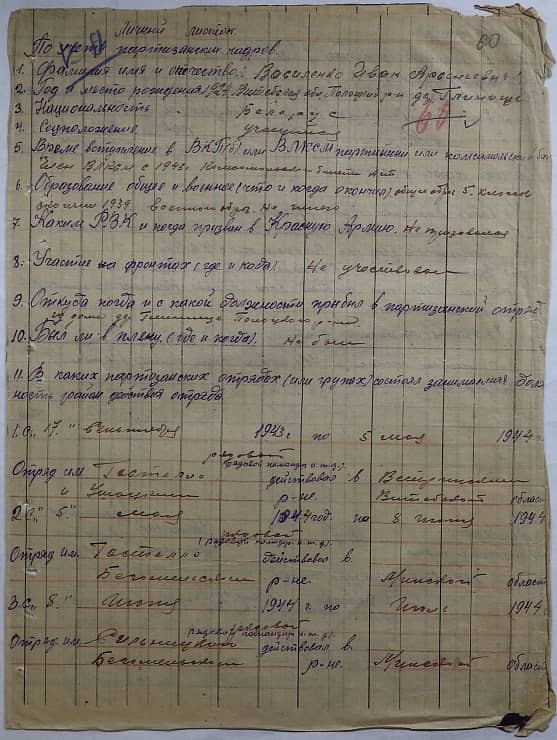 60
Личной листок.
По учету партизанских кадров.
1. Фамилия имя и отчество: Василенко Иван
2. Год и место рождения 1924 Витебская обл. Полоцкий р-н д.
66
3. Национальность Белорус
4. Соцположение учащийся
5. Время вступления в ВКП(б) или ВЛКСМ партийный или комсомольский бил.
Член ВЛКСМ с 1943. Комсомольский билет нет
6. Образование общее и военное (что и когда окончил). общее обр. 5 классов
окончил 1939 военного обр. Не имею
7. Каким РВК и когда призван в Красную Армию. Не призывался
8. Участие на фронтах (где и когда). Не участвовал
9. Откуда когда и с какой должности прибыл в партизанский отряд
из дома д. Полоцкого р-на
10. Был ли в плену (где и когда). Не был
11. В каких партизанских отрядах (или групах) состоял занимаемая долж
ность район действия отряда.
1. С „17." сентября 1943 г по 5 мая 1944 г.
рядовой
(рядовой командир и.т.д.)
Отряд им. Гастелло действовал в
и Ушацким р-не. Витебской области
2. С „5" мая 1944 год. по 8 июня 1944
рядовой
(рядовой командир и.т.д.)
Отряд им. Гастелло действовал в.
Бегомельском р-не. Минской област
3. С „8." июня 1944 г. по 1944
рядовой
(рядовой командир и.т.д.)
Отряд им. действовал в.
Бегомельском р-не. Минской област